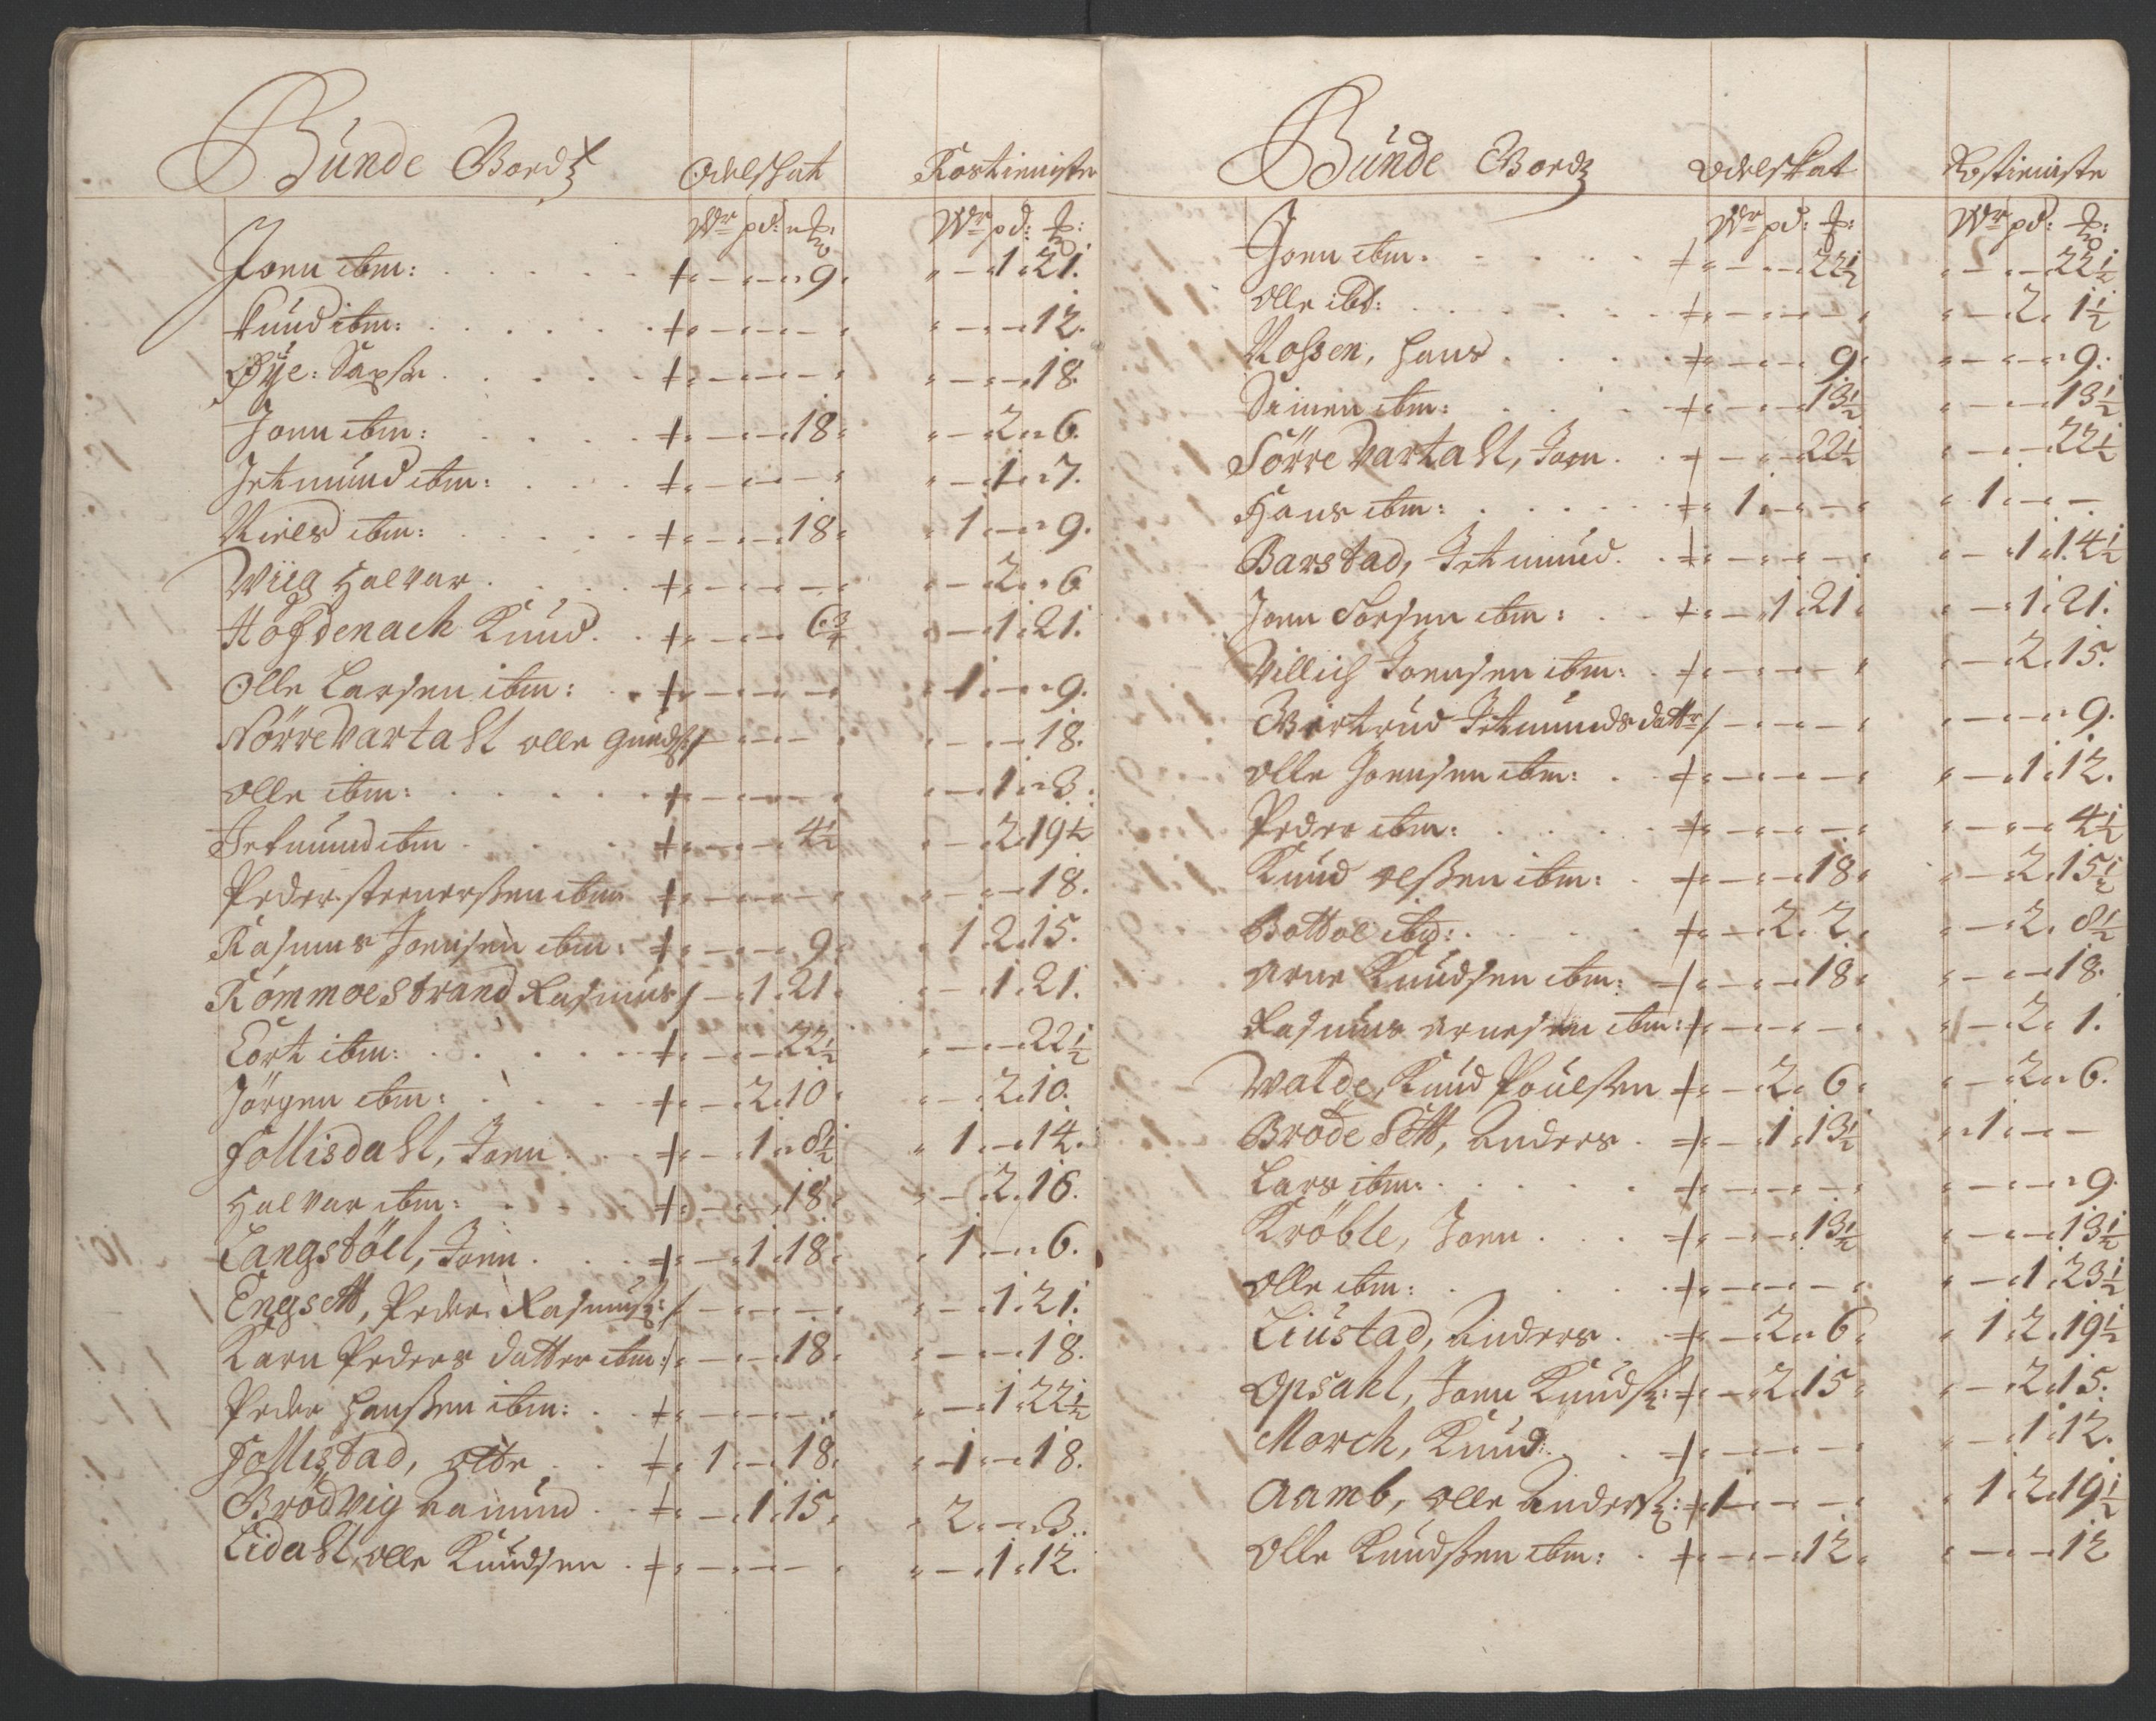 Bunde Gordz Odelskat Rostieniste
Wr pd: ℔: Wr pd: ℔:
Joen ibm: . . . . . +" — " — " 9" " — 1" 21.
Knud ibm: . . . . . +" — " — " — " " — " — " 12.
Øÿe: . . . . +" — " — " — " " — " — " 18.
Jonn ibm: . . . . +" — " — " 18" " — 2" 6.
Jetmund ibm: . . . +" — " — " — " " — 1" 7.
Niels ibm: . . . . +" — " — " 18" " 1" — " 9.
Wiig Halvar . . . +" — " — " — " " — 2" 6
Hofdenack Knud . . +" — " — " 6¾ " — 1" 21.
Olle Larsen ibm: . . +" — " — " — " 1" — " 9.
Nörre Vartall olle / — " — " — " " — " — " 18.
Olle ibm: . . . . . +" — " — " — " " — 1" 3.
Jetmund ibm . . . +" — " — " 4½ " — 2" 19½
Peder ibm +" — " — " — " " — " — " 18.
Rasmus Joensen ibm: +" — " — " 9" " 1" 2" 15.
Rommoestrand Rasmus / — 1" 21" " — 1" 21.
Cort ibm: . . . . +" — " — " 22½ " — " — " 22½
Jörgen ibm: . . . +" — 2" 10" " — 2" 10.
Follisdall, Jonn . . +" — 1" 8½ " 1" — " 14.
Halvar ibm: . . +" — " — " 18" " — 2" 16.
Langstöll, Jonn . . . +" — 1" 18" " 1" — " 6.
Engsett, Peder Rasmusz: / — " — " — " " — 1" 21.
Karn Peders datter ibm: /" — " — " 18" " — " — " 18.
Peder Hanßen ibm: . . +" — " — " — " " — 1" 22½
Follestad, . . +" 1" — " 18" " 1" — " 18.
Brödvig Aamund . . +" — 1" 15" " 2" — " 3.
Lidall, olle Knudsen . +" — " — " — " " — 1" 12.
Bunde Gordz Odelskat Rostieniste
Wr pd: ℔: Wr pd: ℔:
Jonn ibm . . . . . +" — " — " 22½ " — " — " 22½
Olle ibd: . . . . . +" — " — " — " " — 2" 1½
Roßen, Hans . . . +" — " — " 9" " — " — " 9.
Simen ibm: . . . . +" — " — " 13½ " — " — " 13½
Sörre Vartall, Joen . . +" — " — " 22½ " — " — " 22½
Hans ibm: . . . . +" 1" — " — " " 1" — " —
Barstad, Jetmund . . +" — " — " — " " — 1" 14½
Jonn Larsen ibm: . . +" — 1" 21" " — 1" 21.
Villich Joensen ibm: . +" — " — " — " " — 2" 15.
Giertrud Jetmunds datter / — " — " — " " — " — " 9.
Olle Joensen ibm: . . +" — " — " — " " — 1" 12.
Peder ibm: . . . . +" — " — " — " " — " — " 4½
Knud olßen ibm: . +" — " — " 18" " — 2" 15½
Bottol ibd: . . . . +" — 2" 2" " — 2" 8½
Arne Knudsen ibm: +" — " — " 18" " — " — " 18.
Rasmus Arnesen ibm: +" — " — " — " " — 2" 1.
Walde, Knud Poulßen +" — 2" 6" " — 2" 6.
Brödesett, Anders . +" — 1" 13½ " 1" — " —
Lars ibm: . . . . . +" — " — " — " " — " — " 9.
Kröble, Jonn . . . +" — " — " 13½ " — " — " 13½
Olle ibm: . . . . +" — " — " — " " — 1" 23½
Liustad, Anders . . +" — 2" 6" " 1" 2" 19½
Opsahl, Jonn Knudsz: +" — 2" 15" " — 2" 15.
Morck, Knud . . +" — " — " — " " — 1" 12.
Aamb, olle Andersz: +" 1" — " — " " 1" 2" 19½
Olle Knudßen ibm: . +" — " — " 12" " — " — " 12